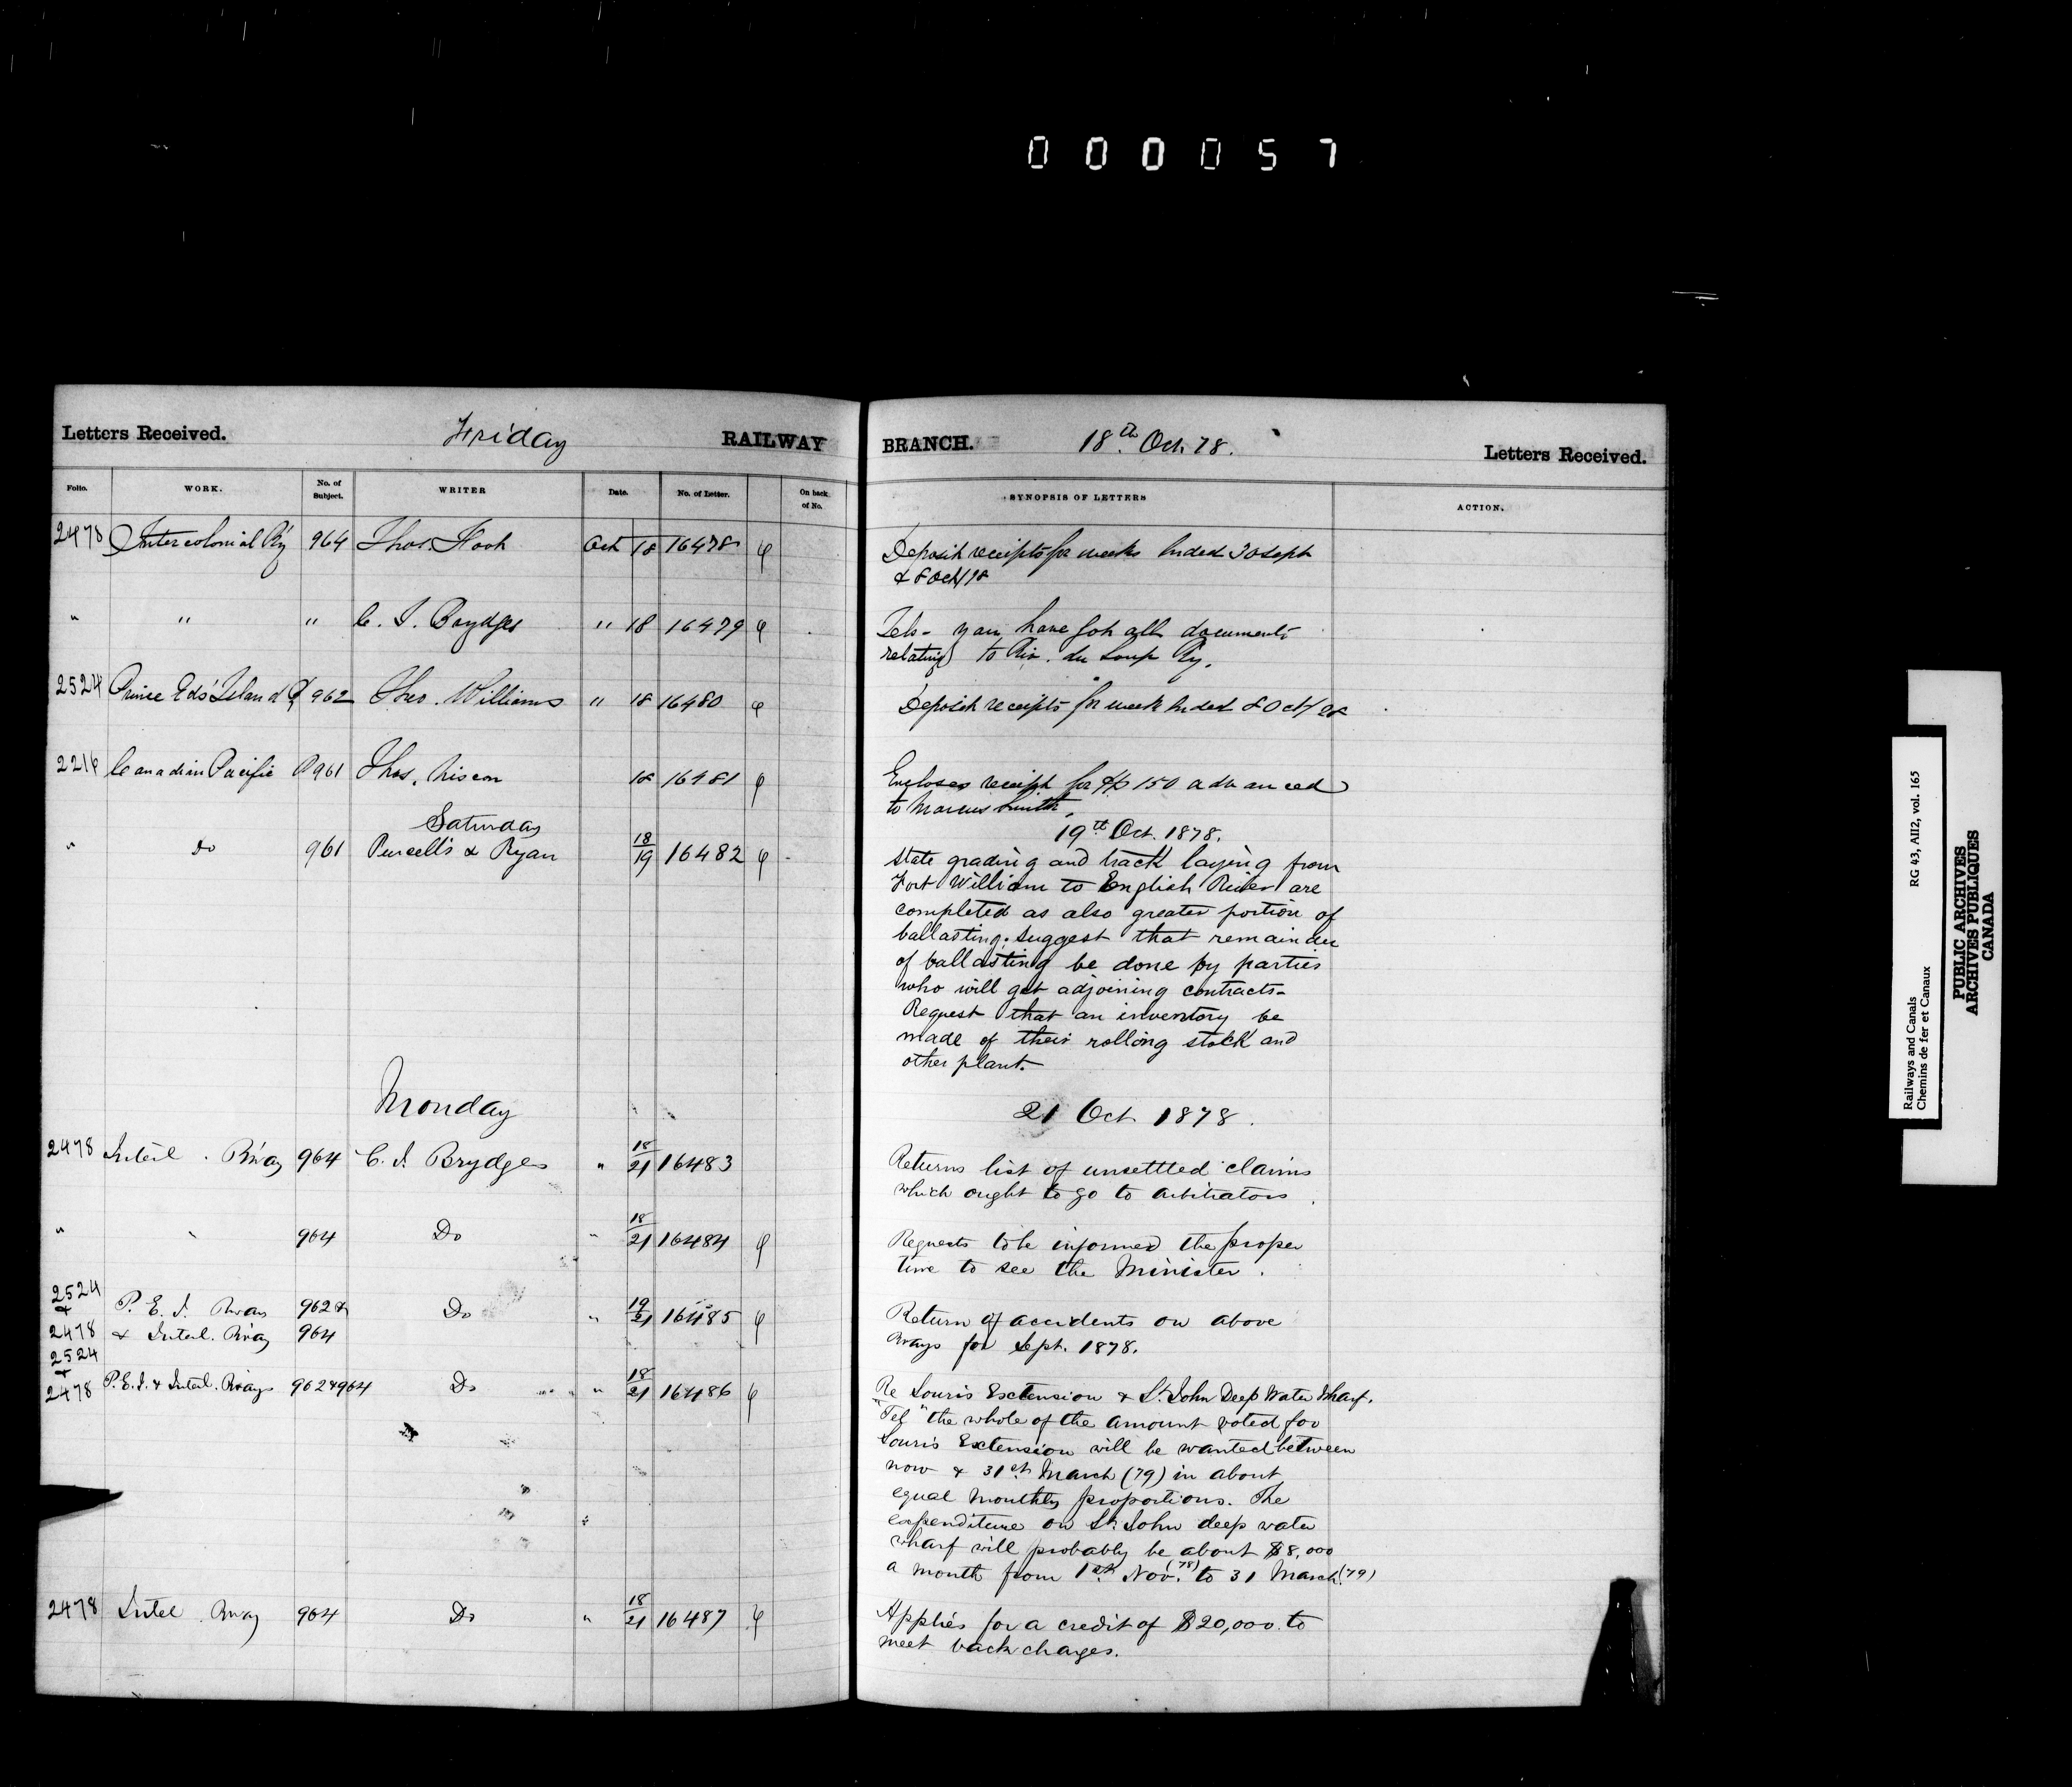 000057
Letters Received. Friday RAILWAY BRANCH. 18th Oct. 78. Letters Received.
Folio. WORK. No. of Subject. WRITER Date. No. of Letter. On back of No. SYNOPSIS OF LETTERS ACTION.
2478 Intercolonial Ry 964 Thos. Oct 18 16478 Deposit receipts for weeks ended 30 Sept
& 8 Oct/78
" " " C. J. Brydges " 18 16479 Tel- you have got all documents
relating to Riv. du Loup Ry.
2524 Prince Eds Island 962 Theo. Williams " 18 16480 Deposit receipts for week ended 8 Oct/78
2216 Canadian Pacific R 961 Thos. Nixon 18 16481 Encloses receipt for $150 advanced
to Marcus Smith
Saturday 19th Oct. 1878.
" Do 961 Purcell's & Ryan 18/19 16482 State grading and track laying from
Fort William to English River are
completed as also greater portion of
ballasting. Suggest that remainder
of ballasting be done by parties
who will get adjoining contracts-
Request that an inventory be
made of their rolling stock and
other plant.
Monday 21 Oct. 1878.
2478 Intercl. R'way 964 C. J. Brydges " 18/21 16483 Returns list of unsettled claims
which ought to go to arbitrators
" " 964 Do " 18/21 16484 Requests to be informed the proper
time to see the Minister.
2524 & P. E. I. Rways 962 & Do " 19/21 16485 Return of accidents on above
2478 & Intercl. R'way 964 Rways for Sept. 1878.
2524 &
2478 P.E.I. & Intercl. Rways 962 & 964 Do " 18/21 16486 Re Souris Extension & St. John Deep Water Wharf.
"Tel" the whole of the amount voted for
Souris Extension will be wanted between
now & 31st March (79) in about
equal monthly proportions. The
expenditure on St. John deep water
wharf will probably be about $8,000
a month from 1st Nov. (78) to 31 March (79)
2478 Intcl. Rway 964 Do " 18/21 16487 Applies for a credit of $20,000 to
meet back charges.
Railways and Canals RG 43, AII2, vol. 165
Chemins de fer et Canaux
PUBLIC ARCHIVES
ARCHIVES PUBLIQUES
CANADA